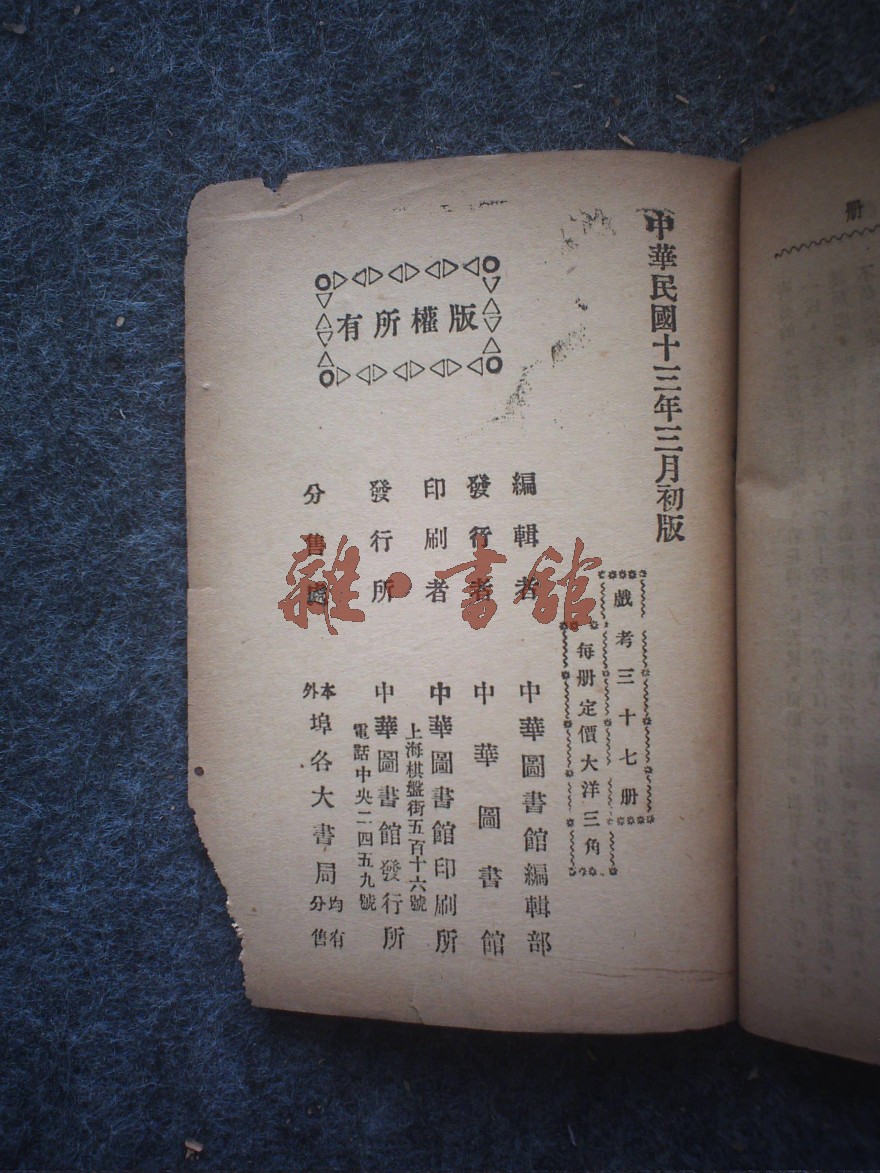 中華民國十三年三月初版
戲考三十七册
每册定價大洋三角
版權所有
編輯者 中華圖書館編輯部
發行者 中華圖書館
印刷者 中華圖書館印刷所
上海棋盤街五百十六號
發行所 中華圖書館發行所
電話中央二四五九號
分售處 本外埠各大書局均有分售
雜·書館
册